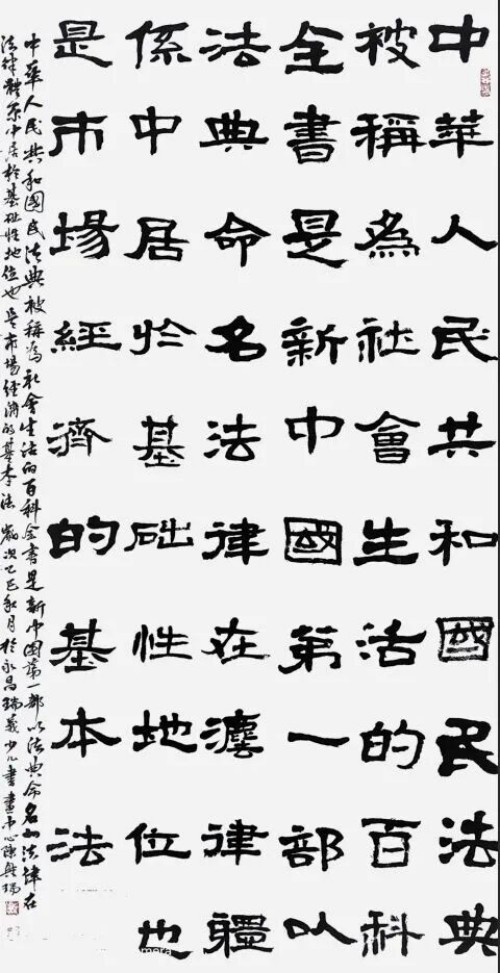 中華人民共和國民法典
被稱為社會生活的百科
全書是新中國第一部以
法典命名法律在灋律軆
係中居於基础性地位也
是市場經濟的基本法
中華人民共和國民法典被稱為社會生活的百科全書是新中國第一部以法典命名的法律在
法律體系中居於基础性地位也是市場經濟的基本法 歲次乙巳秋月於永昌瑞義少儿書畫中心陳興瑞